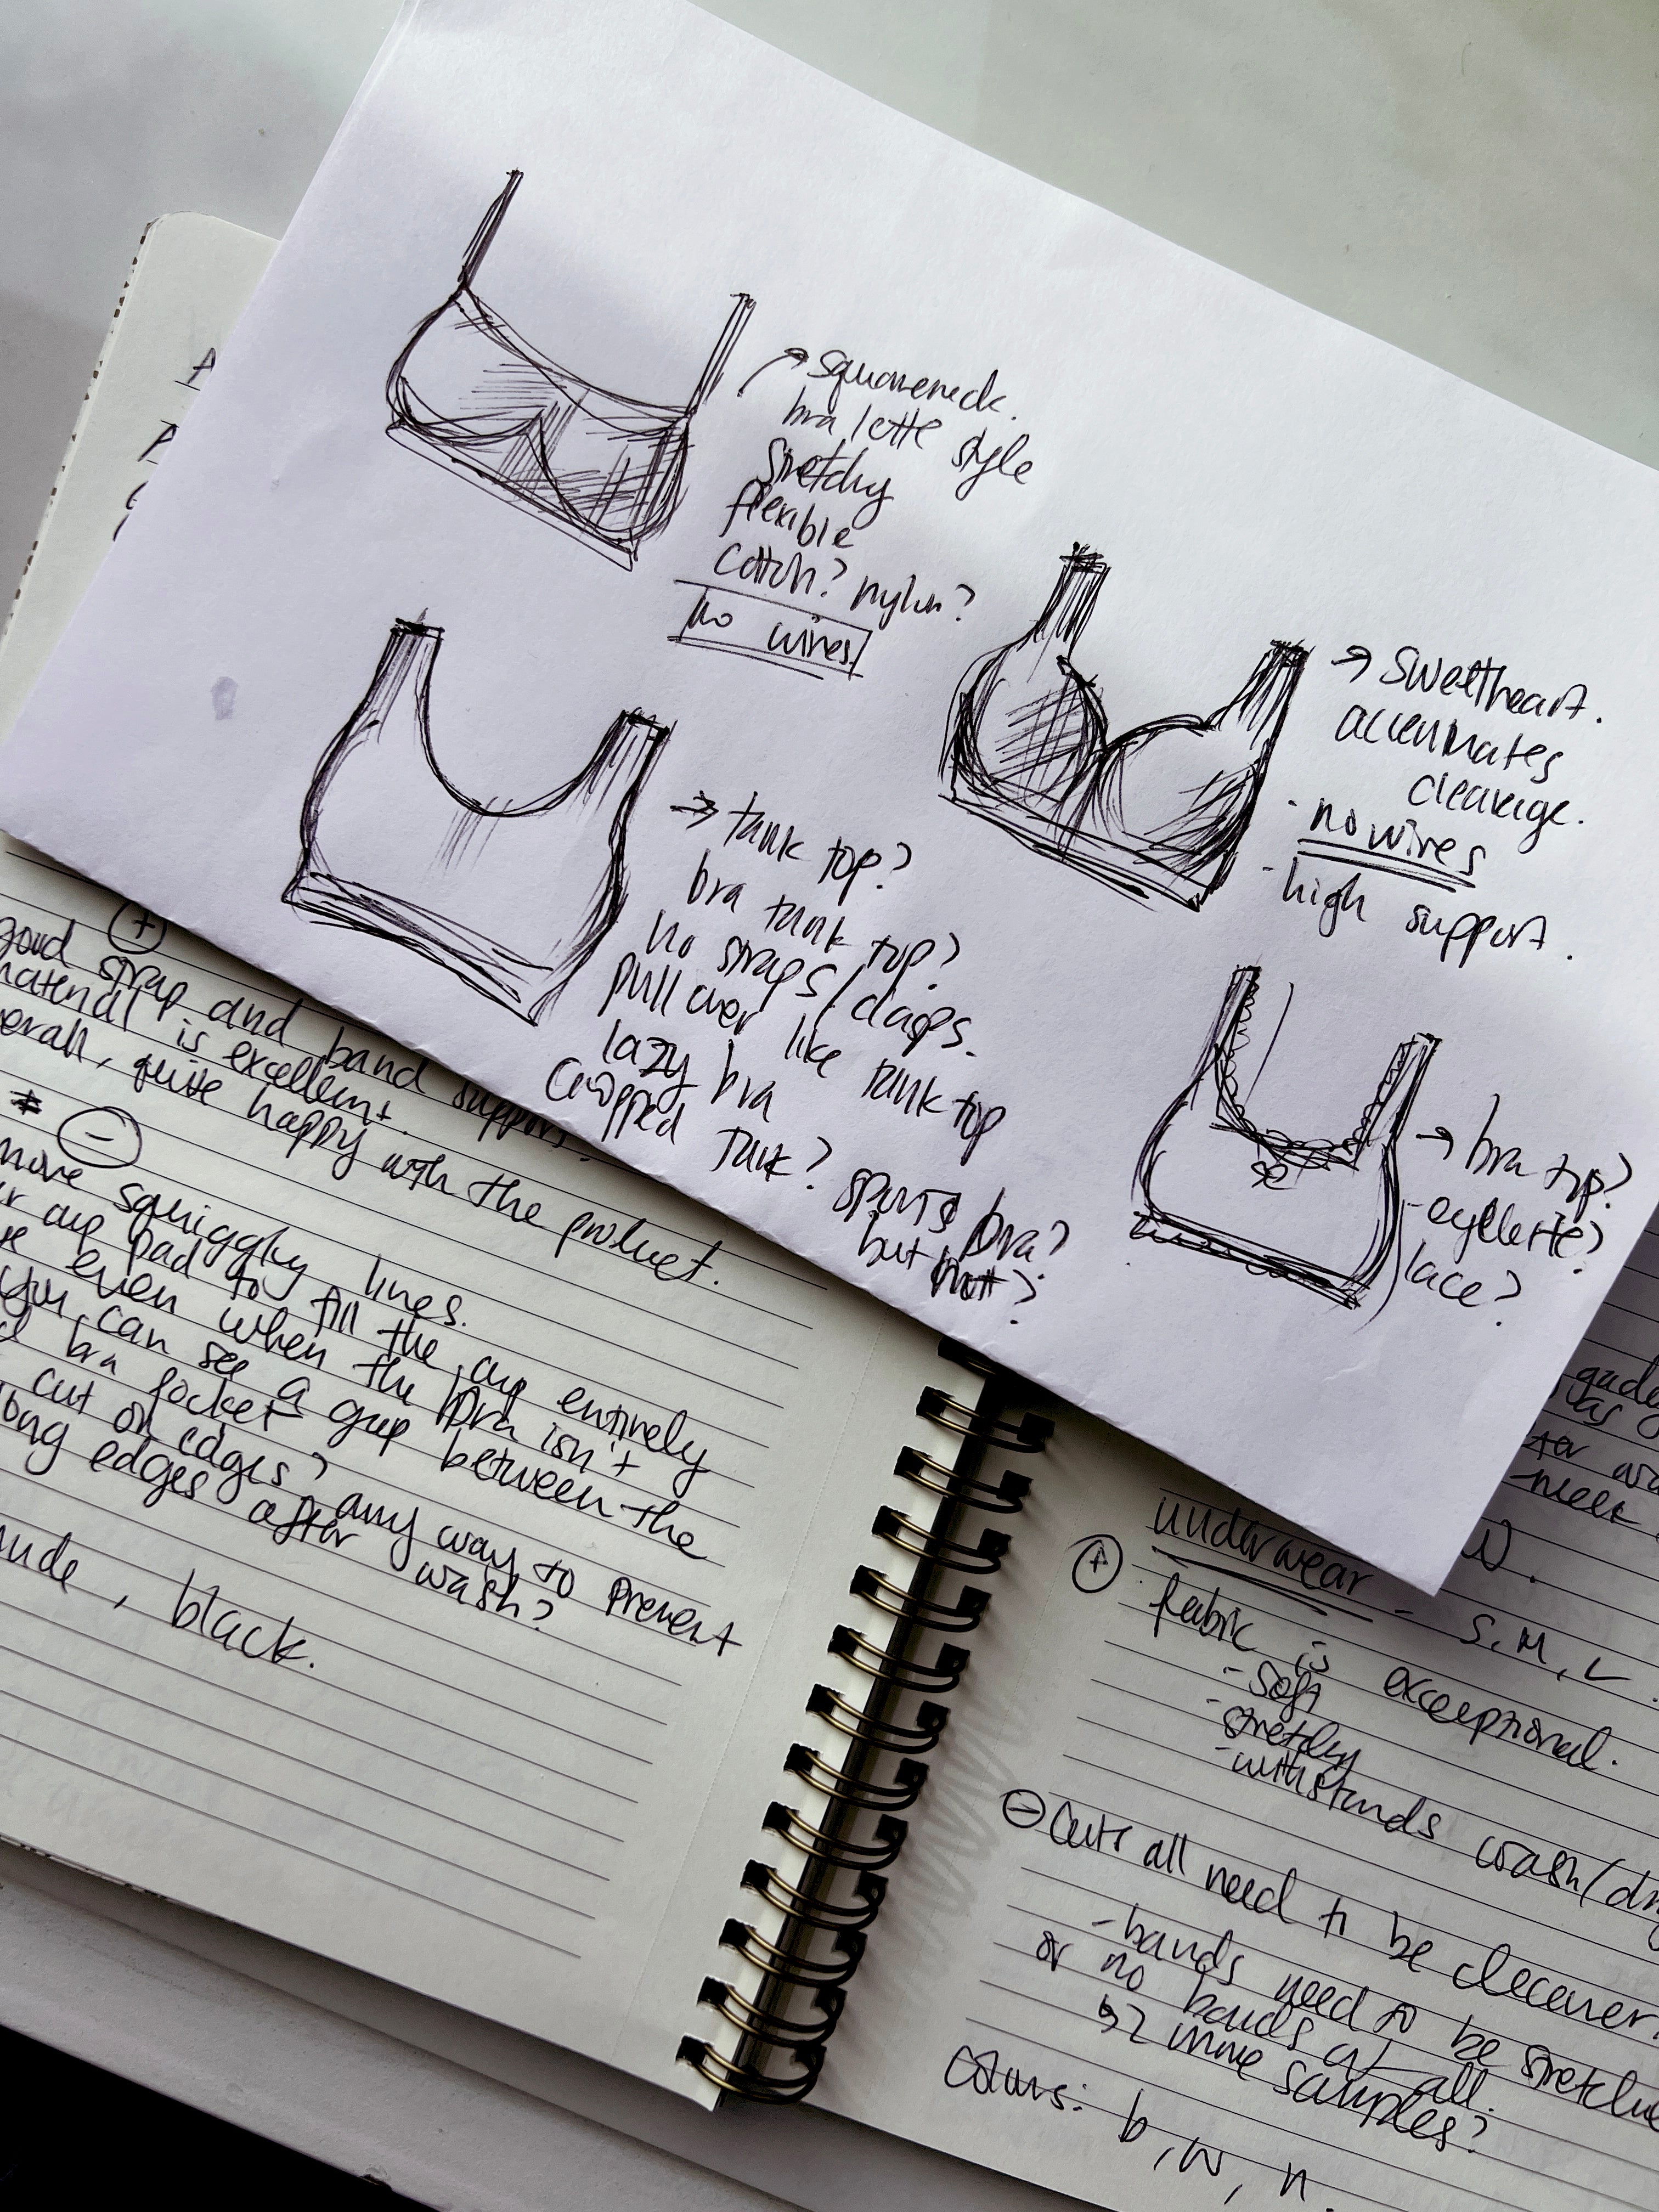 squareneck.
bra lette style
stretchy
flexible
cotton? nylon?
no wires.
→ sweetheart.
accentuates
cleavage.
- no wires
- high support.
→ tank top?
bra tank top?
no straps/clasps.
pull over like tank top
lazy bra
cropped tank? sports bra?
but not?
→ bra top?
- eyelette?
lace?
+
good strap and band support.
material is excellent.
overall, quite happy with the product.
* -
more squiggly lines.
cup pad to fill the cup entirely
even when the bra isn't
you can see a gap between the
bra pocket
cut on edges? any way to prevent
edges after wash?
nude, black.
underwear - S, M, L.
+ fabric is exceptional.
- soft
- stretchy
- withstands wash/
- Cuts all need to be
- bands need to be
or no bands at all.
↳ 2 more samples?
Colours: b, w, n.